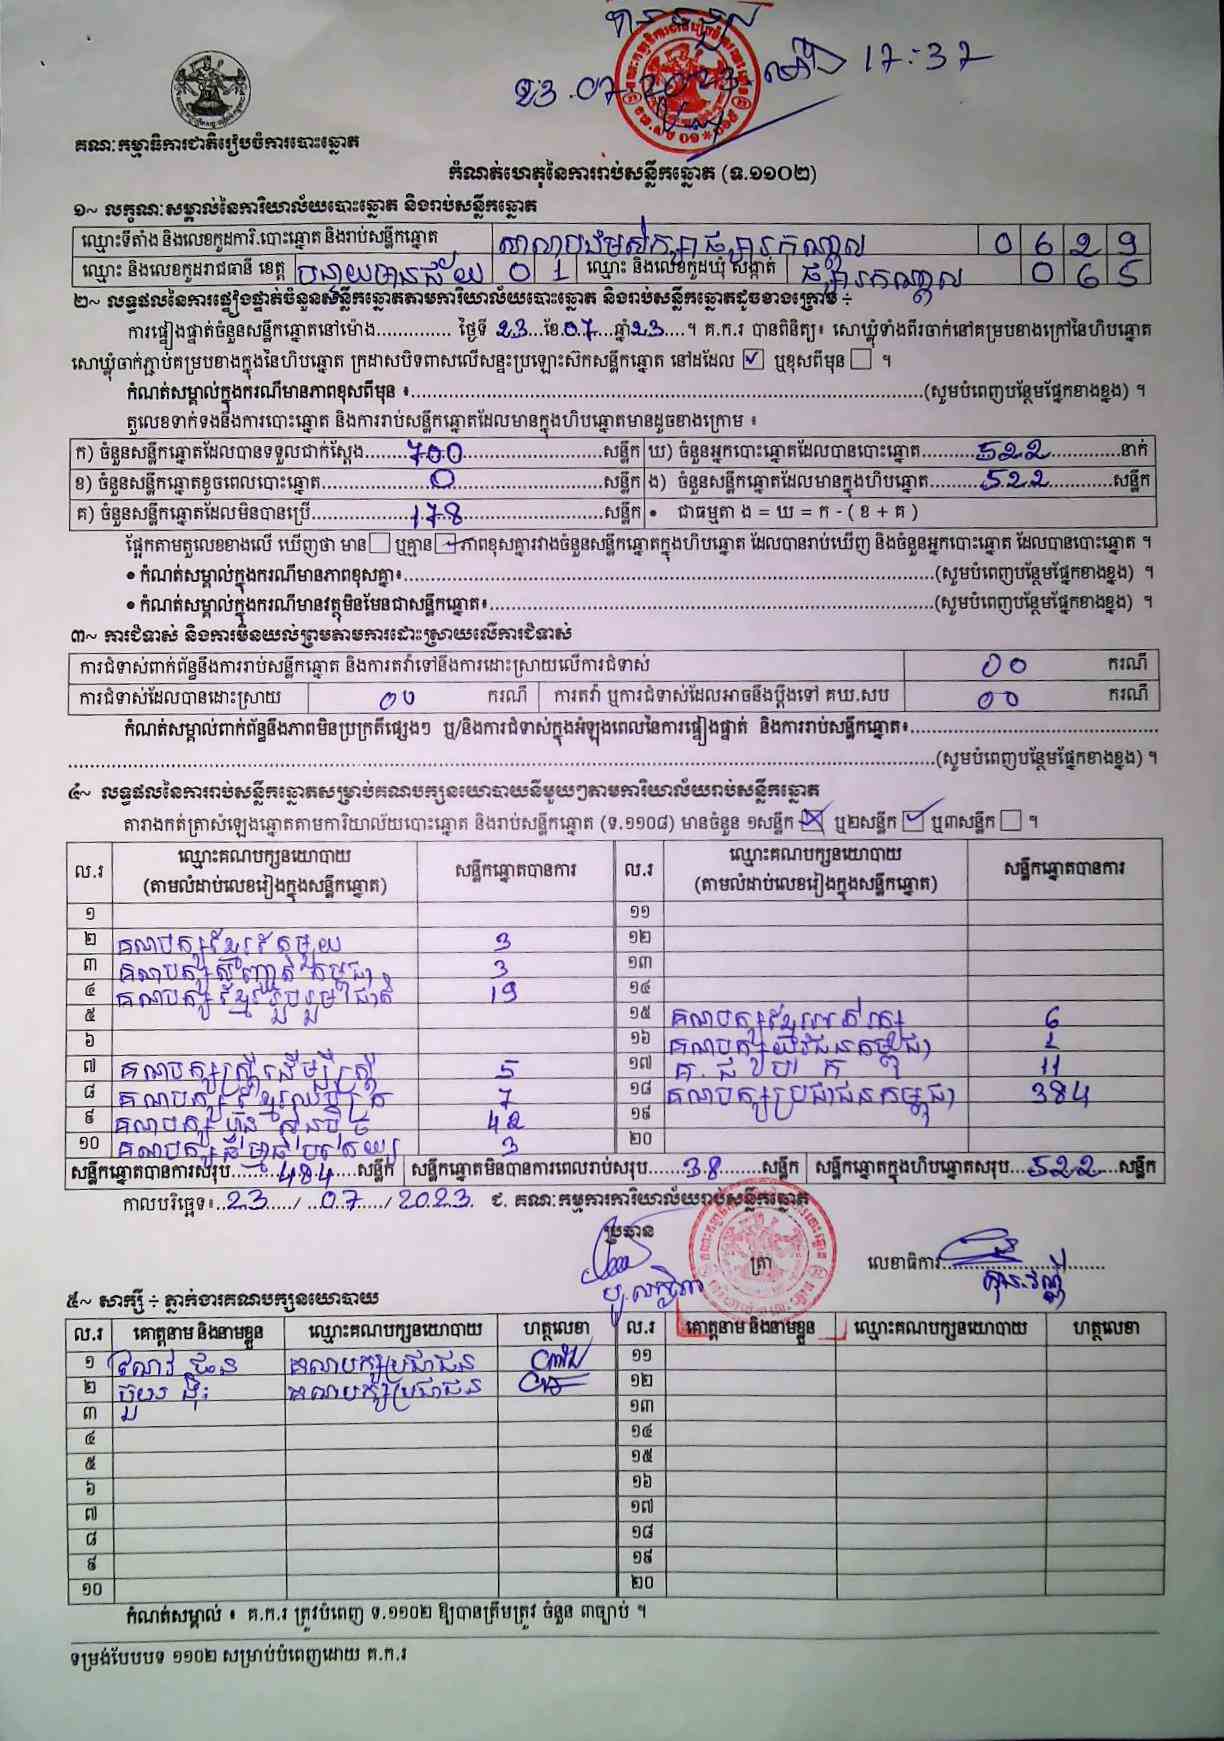 បានចូល
23.07.2023 ម៉ោង 17:37
គណៈកម្មាធិការជាតិរៀបចំការបោះឆ្នោត
កំណត់ហេតុនៃការរាប់សន្លឹកឆ្នោត (ទ.១១០២)
១~ លក្ខណៈសម្គាល់នៃការិយាល័យបោះឆ្នោត និងរាប់សន្លឹកឆ្នោត
ឈ្មោះទីតាំង និងលេខកូដការិ.បោះឆ្នោត និងរាប់សន្លឹកឆ្នោត 0 6 2 9
ឈ្មោះ និងលេខកូដរាជធានី ខេត្ត បន្ទាយមានជ័យ 0 1 ឈ្មោះ និងលេខកូដឃុំ សង្កាត់ ផ្សារកណ្តាល 0 6 5
២~ លទ្ធផលនៃការផ្ទៀងផ្ទាត់ចំនួនសន្លឹកឆ្នោតតាមការិយាល័យបោះឆ្នោត និងរាប់សន្លឹកឆ្នោតដូចខាងក្រោម ÷
ការផ្ទៀងផ្ទាត់ចំនួនសន្លឹកឆ្នោតនៅម៉ោង.............. ថ្ងៃទី 23 ខែ 07 ឆ្នាំ 23 ។ គ.ក.រ បានពិនិត្យ៖ សោឃ្លុំទាំងពីរចាក់នៅគម្របខាងក្រៅនៃហិបឆ្នោត
សោឃ្លុំចាក់ភ្ជាប់គម្របខាងក្នុងនៃហិបឆ្នោត ក្រដាសបិទពាសលើសន្ទះប្រឡោះស៊កសន្លឹកឆ្នោត នៅដដែល ☑ ឬខុសពីមុន ☐ ។
កំណត់សម្គាល់ក្នុងករណីមានភាពខុសពីមុន ៖..............(សូមបំពេញបន្ថែមផ្នែកខាងខ្នង) ។
តួលេខទាក់ទងនឹងការបោះឆ្នោត និងការរាប់សន្លឹកឆ្នោតដែលមានក្នុងហិបឆ្នោតមានដូចខាងក្រោម ៖
ក) ចំនួនសន្លឹកឆ្នោតដែលបានទទួលជាក់ស្តែង 700 សន្លឹក ឃ) ចំនួនអ្នកបោះឆ្នោតដែលបានបោះឆ្នោត 522 នាក់
ខ) ចំនួនសន្លឹកឆ្នោតខូចពេលបោះឆ្នោត 0 សន្លឹក ង) ចំនួនសន្លឹកឆ្នោតដែលមានក្នុងហិបឆ្នោត 522 សន្លឹក
គ) ចំនួនសន្លឹកឆ្នោតដែលមិនបានប្រើ 178 សន្លឹក • ជាធម្មតា ង = ឃ = ក - ( ខ + គ )
ផ្អែកតាមតួលេខខាងលើ ឃើញថា មាន ☐ ឬគ្មាន ☑ ភាពខុសគ្នារវាងចំនួនសន្លឹកឆ្នោតក្នុងហិបឆ្នោត ដែលបានរាប់ឃើញ និងចំនួនអ្នកបោះឆ្នោត ដែលបានបោះឆ្នោត ។
• កំណត់សម្គាល់ក្នុងករណីមានភាពខុសគ្នា៖..............(សូមបំពេញបន្ថែមផ្នែកខាងខ្នង) ។
• កំណត់សម្គាល់ក្នុងករណីមានវត្ថុមិនមែនជាសន្លឹកឆ្នោត៖..............(សូមបំពេញបន្ថែមផ្នែកខាងខ្នង) ។
៣~ ការជំទាស់ និងការមិនយល់ព្រមតាមការដោះស្រាយលើការជំទាស់
ការជំទាស់ពាក់ព័ន្ធនឹងការរាប់សន្លឹកឆ្នោត និងការតវ៉ាទៅនឹងការដោះស្រាយលើការជំទាស់ 00 ករណី
ការជំទាស់ដែលបានដោះស្រាយ 00 ករណី ការតវ៉ា ឬការជំទាស់ដែលអាចនឹងប្តឹងទៅ គឃ.សប 00 ករណី
កំណត់សម្គាល់ពាក់ព័ន្ធនឹងភាពមិនប្រក្រតីផ្សេងៗ ឬ/និងការជំទាស់ក្នុងអំឡុងពេលនៃការផ្ទៀងផ្ទាត់ និងការរាប់សន្លឹកឆ្នោត៖..............
..............(សូមបំពេញបន្ថែមផ្នែកខាងខ្នង) ។
៤~ លទ្ធផលនៃការរាប់សន្លឹកឆ្នោតសម្រាប់គណបក្សនយោបាយនីមួយៗតាមការិយាល័យរាប់សន្លឹកឆ្នោត
តារាងកត់ត្រាសំឡេងឆ្នោតតាមការិយាល័យបោះឆ្នោត និងរាប់សន្លឹកឆ្នោត (ទ.១១០៨) មានចំនួន ១សន្លឹក ☒ ឬ២សន្លឹក ☑ ឬ៣សន្លឹក ☐ ។
ល.រ ឈ្មោះគណបក្សនយោបាយ (តាមលំដាប់លេខរៀងក្នុងសន្លឹកឆ្នោត) សន្លឹកឆ្នោតបានការ ល.រ ឈ្មោះគណបក្សនយោបាយ (តាមលំដាប់លេខរៀងក្នុងសន្លឹកឆ្នោត) សន្លឹកឆ្នោតបានការ
១ ១១
២ គណបក្សខ្មែរតែមួយ 3 ១២
៣ គណបក្សសំបុកឃ្មុំ 3 ១៣
៤ គណបក្សខ្មែររួបរួមជាតិ 19 ១៤
៥ ១៥ គណបក្ស 6
៦ ១៦ គណបក្សយុវជនកម្ពុជា 1
៧ គណបក្សស្ត្រីដើម្បីស្ត្រី 5 ១៧ គ. 11
៨ គណបក្ស 7 ១៨ គណបក្សប្រជាជនកម្ពុជា 384
៩ គណបក្ស ហ៊្វុនស៊ិនប៉ិច 42 ១៩
១០ គណបក្ស 3 ២០
សន្លឹកឆ្នោតបានការសរុប 484 សន្លឹក សន្លឹកឆ្នោតមិនបានការពេលរាប់សរុប 38 សន្លឹក សន្លឹកឆ្នោតក្នុងហិបឆ្នោតសរុប 522 សន្លឹក
កាលបរិច្ឆេទ៖ 23 / 07 / 2023 ជ. គណៈកម្មការការិយាល័យរាប់សន្លឹកឆ្នោត
ប្រធាន ត្រា លេខាធិការ
៥~ សាក្សី ÷ ភ្នាក់ងារគណបក្សនយោបាយ
ល.រ គោត្តនាម និងនាមខ្លួន ឈ្មោះគណបក្សនយោបាយ ហត្ថលេខា ល.រ គោត្តនាម និងនាមខ្លួន ឈ្មោះគណបក្សនយោបាយ ហត្ថលេខា
១ គណបក្សប្រជាជន ១១
២ គណបក្សប្រជាជន ១២
៣ ១៣
៤ ១៤
៥ ១៥
៦ ១៦
៧ ១៧
៨ ១៨
៩ ១៩
១០ ២០
កំណត់សម្គាល់ ៖ គ.ក.រ ត្រូវបំពេញ ទ.១១០២ ឱ្យបានត្រឹមត្រូវ ចំនួន ៣ច្បាប់ ។
ទម្រង់បែបបទ ១១០២ សម្រាប់បំពេញដោយ គ.ក.រ